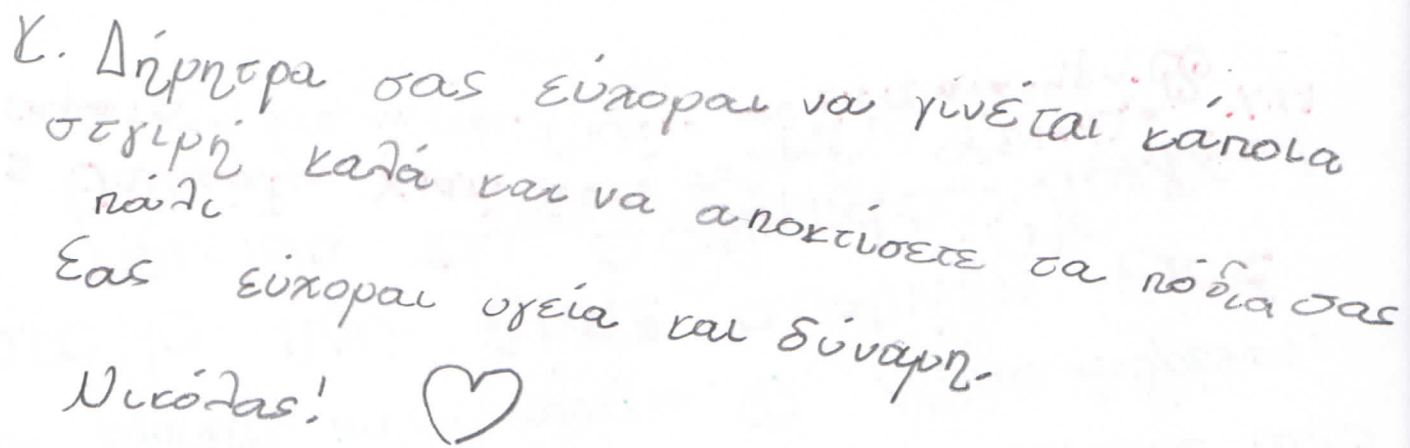 Κ. Δήμητρα σας εύχομαι να γίνέται κάποια
στγιμή καλά και να αποκτίσετε τα πόδια σας
πάλι
Σας εύχομαι υγεία και δύναμη.
Νικόλας!